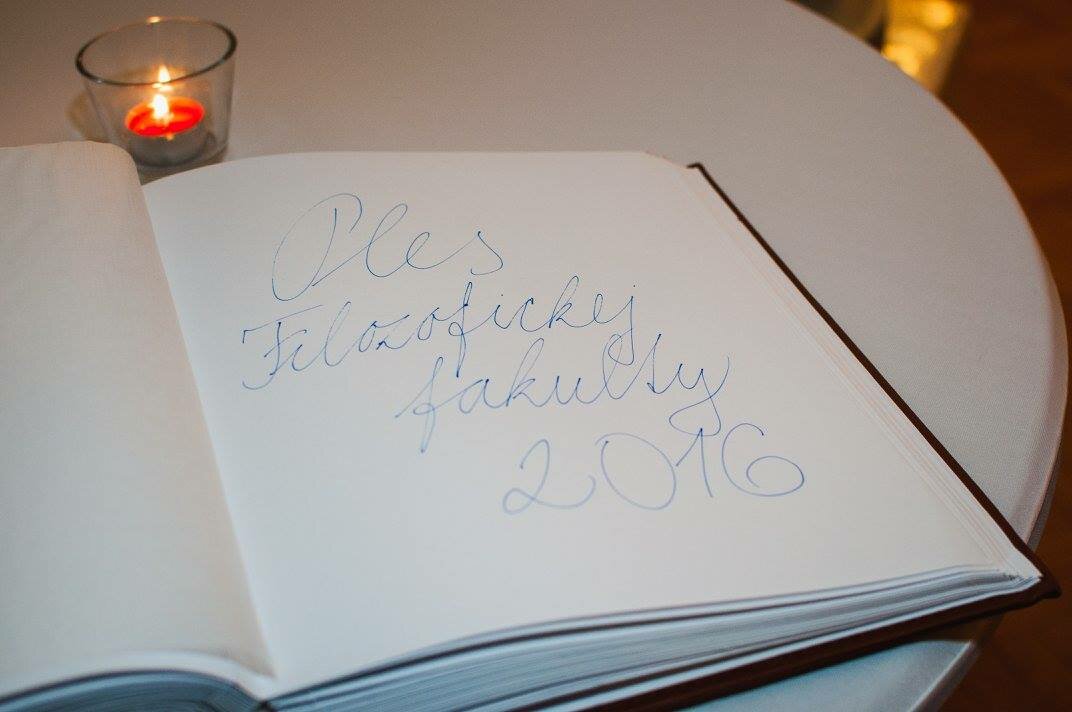 Ples
Filozofickej
fakulty
2016